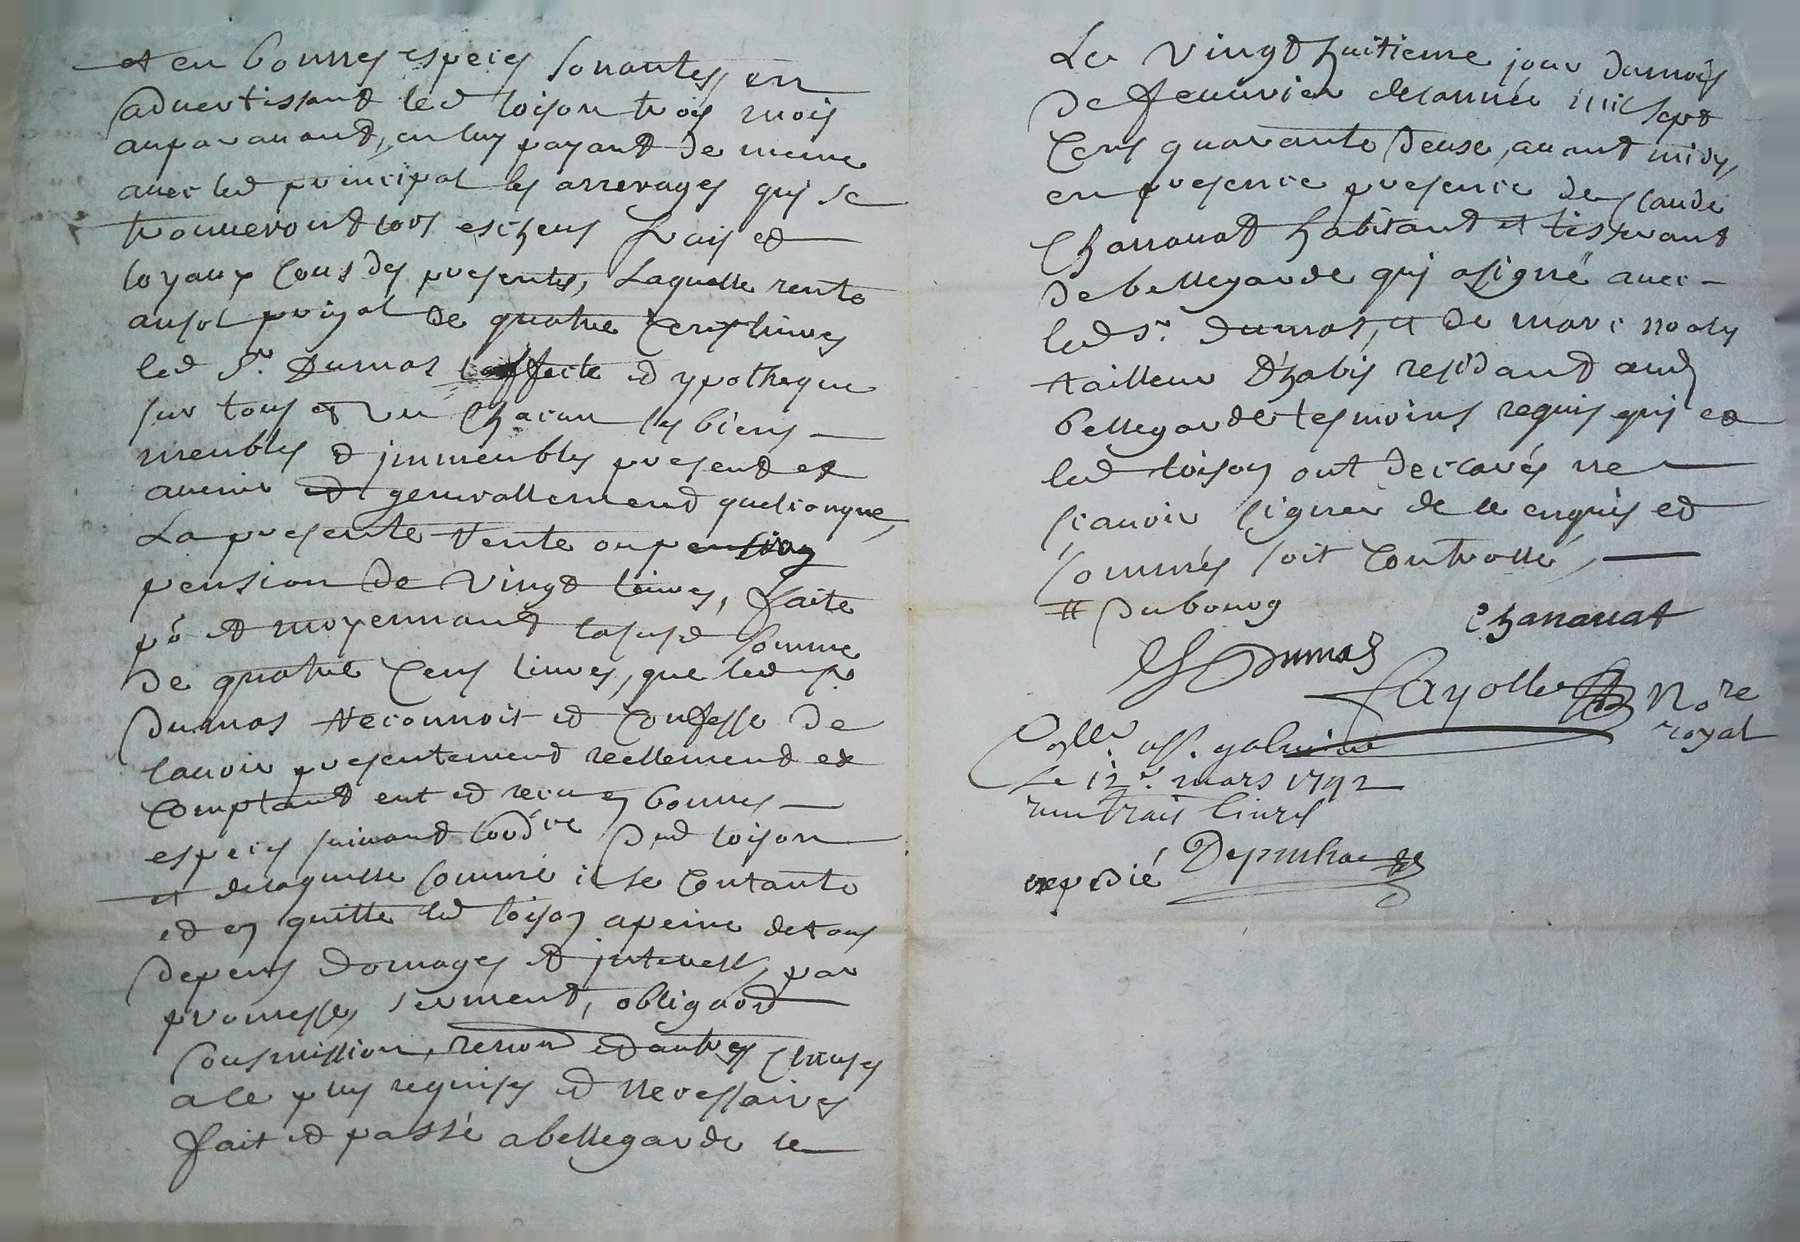 et en bonnes especes sonantes, en
advertissant led loison trois mois
auparavant, en luy payant de meme
avec led principal les arrerages quy se
trouveront lors escheus frais et
loyaux cous des presentes, Laquelle rente
ausd prinpal de quatre cens livres
led Sr. Dumas affecte et ypotheque
sur tous et un chacun ses biens
meubles et jmmeubles present et
avenir et generallement quelconque,
La presente vente ou pension
pension de vingt livres, faite
po et moyennant lasusd somme
de quatre cens livres, que led sr
Dumas Reconnoit et confesse de
lavoir presentement reellement et
comptant eut et receu en bonnes
especes suivant lordce Dud loison
et delaquelle somme il se contante
et en quitte led loison apeine detous
depens domages et jnterest, par
promesses serment, obligaon
sousmission, renon et autres clauses
a ce plus requises et necessaires
fait et passé abellegarde le
Le vingt huitieme jour dumois
de fevuvier delannée mil sept
cens quarante deuse, avant midy,
en presence presence de claude
Charrouat habitant et tisserant
de bellegarde quy asigné avec
led Sr. dumas, et de marc noaly
tailleur D'habis residant aud
bellegarde tesmoins requis quy et
led loison ont declarés ne
scavoir signer de ce enquis et
sommés soit controllé,
# Dubourg
charrouat
Dumas
fayolle Nore
royal
Collé. aff. gal
Le 12e. mars 1742
livres
expedié